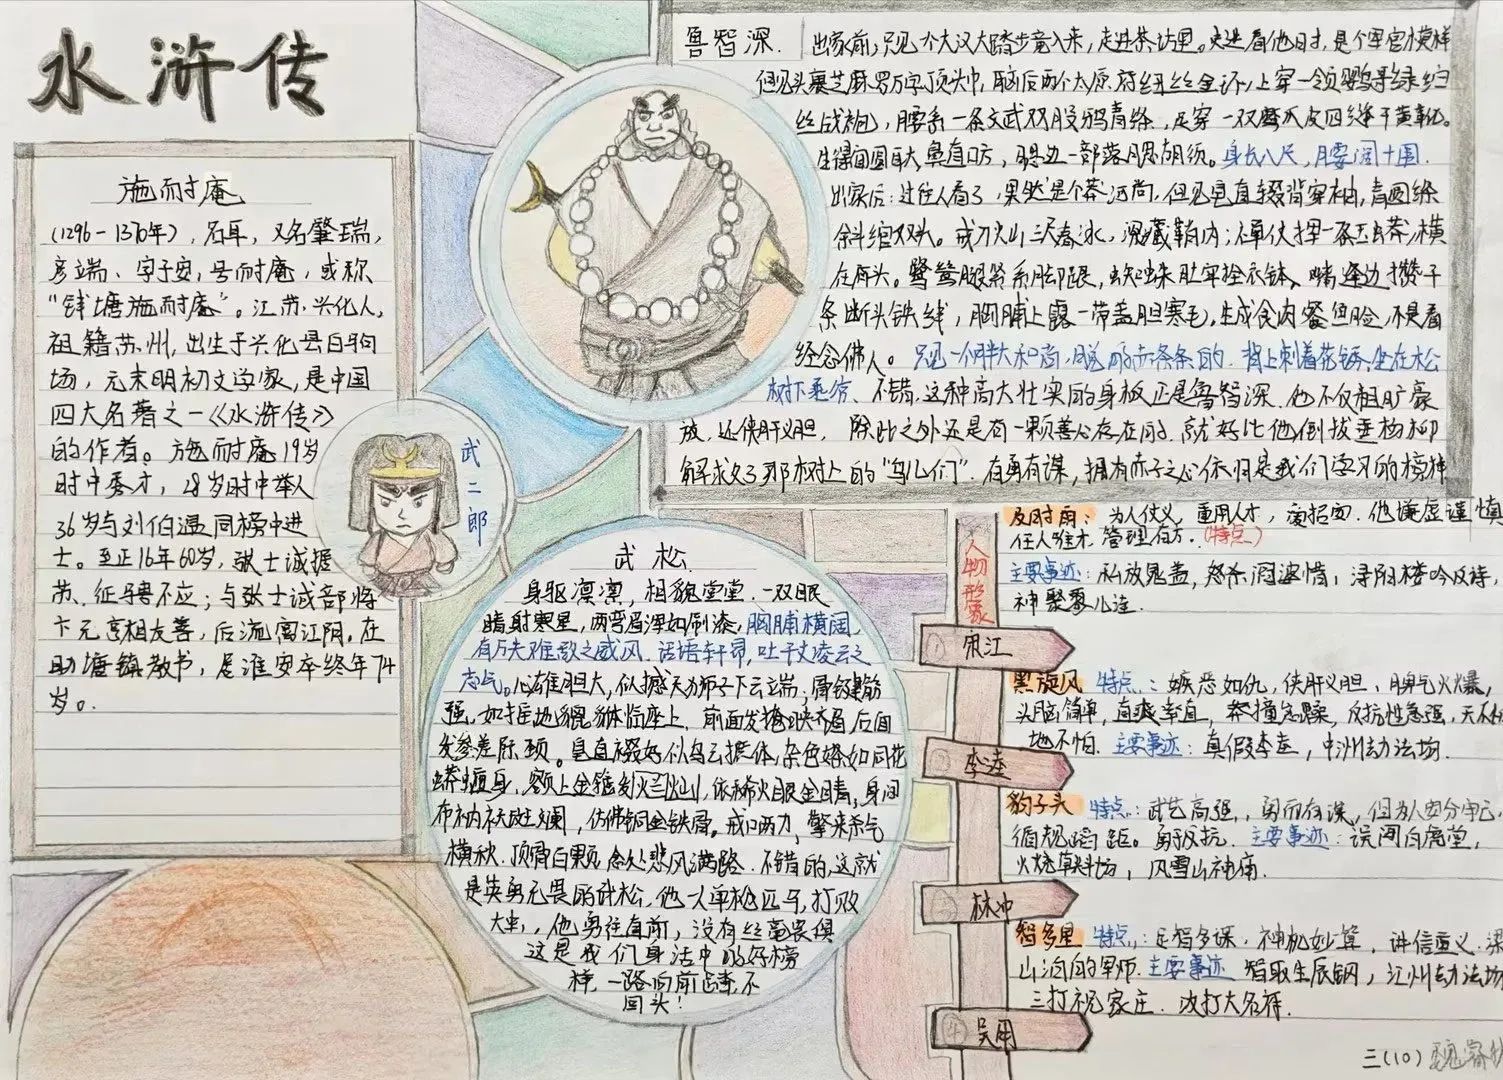 水浒传
施耐庵
(1296－1370年)，名耳，又名肇瑞，
彦端、字子安，号耐庵，或称
“钱塘施耐庵”。江苏兴化人，
祖籍苏州，出生于兴化县白驹
场，元末明初文学家，是中国
四大名著之一《水浒传》
的作者。施耐庵19岁
时中秀才，28岁时中举人
36岁与刘伯温同榜中进
士。至正16年60岁，张士诚据
苏，征骋不应；与张士诚部将
卞元亨相友善，后流寓江阴，在
助塘镇教书，居淮安卒终年74
岁。
武二郎
鲁智深.
出家前；只见一个大汉大踏步竟入来，走进茶坊里。史进看他时，是个军官模样
但见头裹芝麻罗万字顶头巾，脑后两个太原府纽丝金环，上穿一领鹦哥绿纻
丝战袍，腰系一条文武双股鸦青绦，足穿一双鹰爪皮四缝干黄靴。
生得面圆耳大，鼻直口方，腮边一部落腮胡须。身长八尺，腰阔十围.
出家后：过往人看了，果然是个莽和尚，但见皂直裰背穿袖，青圆绦
斜绾双头。戒刀灿三尺春冰，深藏鞘内；禅仗挥一条玉蟒，横
在肩头。鹭鸶腿紧系脚跟，蜘蛛肚牢拴衣钵。嘴缝边攒千
条断头铁线，胸脯上露一带盖胆寒毛，生成食肉餐鱼脸，不是看
经念佛人。只见一个胖大和尚，脱的赤条条的，背上刺着花绣，坐在松
树下乘凉、不错，这种高大壮实的身板正是鲁智深，他不仅粗旷豪
放，还侠肝义胆，除此之外还是有一颗善心存在的，就好比他倒拔垂杨柳
解求好了那树上的“鸟儿们”，有勇有谋，拥有赤子之心依旧是我们学习的榜样
武松.
身驱凛凛，相貌堂堂.一双眼
睛射寒星，两弯眉浑如刷漆，胸脯横阔，
有万夫难敌之威风，话语轩昂，吐千丈凌云之
志气。心雄胆大，似撼天力狮子下云端；骨键筋
强，如摇地貔貅临座上，前面发掩映齐眉，后面
发参差际颈。皂直裰好似乌云摭体，杂色绦如同花
蟒缠身，额上金箍刬灭三灿，依稀火眼金睛，身间
布衲袄斑斓，仿佛铜金铁骨。戒口两力，擎来杀气
横秋，顶骨白颗，念处悲风满路.不错的，这就
是英勇无畏的武松，他一人单枪匹马，打败
大虫，他勇往直前，没有丝毫畏惧
这是我们身活中的好榜
样，一路向前决不
回头！
人物形象
及时雨：为人仗义，重用人才，爱招安.他谦虚谨慎
任人唯才，管理有方.(特点)
主要事迹：私放晁盖，怒杀阎婆惜，浔阳楼吟反诗，
神聚蓼儿洼.
宋江
黑旋风 特点：嫉恶如仇，侠肝义胆，脾气火爆，
头脑简单，直爽率直，莽撞急躁，反抗性急强，天不怕
地不怕. 主要事迹：真假李逵，中州劫法场.
李逵
豹子头 特点：武艺高强，勇而有谋，但为人安分守己，
循规蹈距。勇敢抗. 主要事迹：误闯白虎堂，
火烧草料场，风雪山神庙.
林冲
智多星 特点：足智多谋，神机妙算，讲信重义.梁
山泊的军师. 主要事迹 智取生辰钢，江州劫法场
三打祝家庄.攻打大名府.
吴用
三(10)